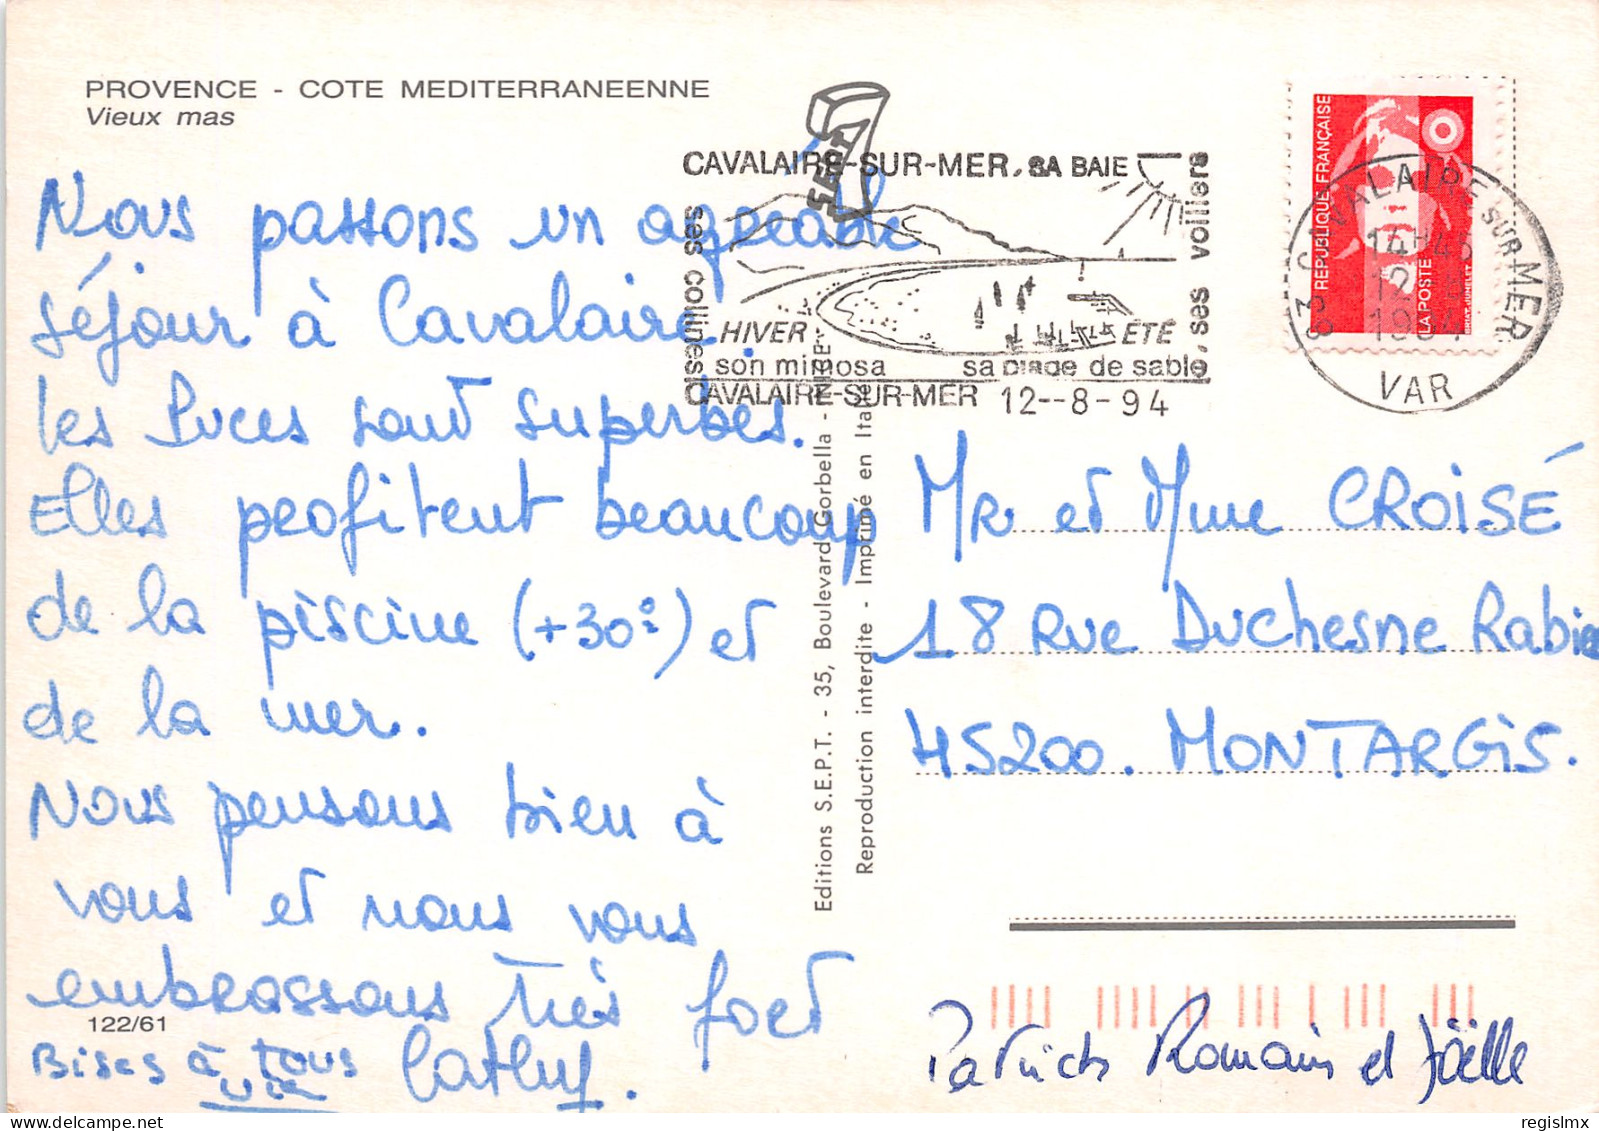 PROVENCE - COTE MEDITERRANEENNE
Vieux mas
Nous passons un agréable
séjour à Cavalaire.
les Puces sont superbes.
Elles profitent beaucoup
de la piscine (+30°) et
de la mer.
Nous pensons bien à
vous et nous vous
embrassons très fort
122/61
Bises à tous
Cathy.
CAVALAIRE-SUR-MER, SA BAIE
ses collines
ses voiliers
HIVER ÉTÉ
son mimosa sa plage de sable,
CAVALAIRE-SUR-MER 12--8-94
sept
REPUBLIQUE FRANÇAISE
LA POSTE
BRIAT-JUMELET
83 CAVALAIRE SUR MER
14H45
12
1994
VAR
Editions S.E.P.T. - 35, Boulevard Gorbella - NICE
Reproduction interdite - Imprimé en Italie
MR et Mme CROISÉ
18 Rue Duchesne Rabier
45200. MONTARGIS.
Patrick Romain et Joëlle
regislmx